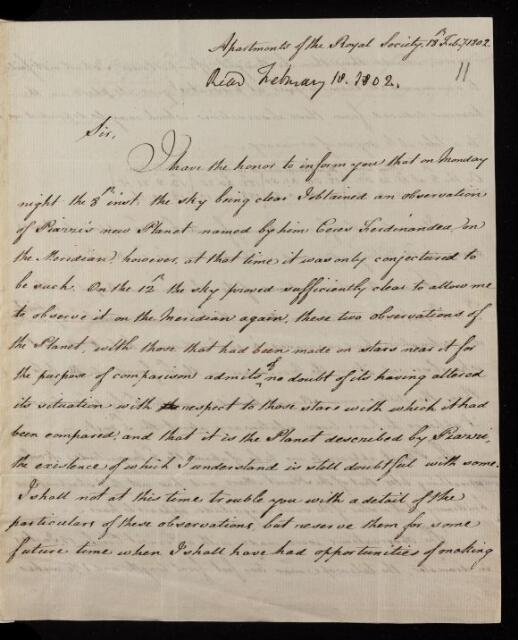 Apartments of the Royal Society. 18th Feby 1802.
Read February 18. 1802.
11
Sir,
I have the honor to inform you that on Monday
night the 8th inst. the sky being clear I obtained an observation
of Piazzi's new Planet named by him Ceres Ferdinandea, on
the Meridian, however, at that time it was only conjectured to
be such. On the 12th the sky proved sufficiently clear to allow me
to observe it on the Meridian again, these two observations of
the Planet, with those that had been made on stars near it for
the purpose of comparison admits of no doubt of its having altered
its situation with respect to those stars with which it had
been compared, and that it is the Planet described by Piazzi,
the existence of which I understand is still doubtful with some.
I shall not at this time trouble you with a detail of the
particulars of these observations, but reserve them for some
future time when I shall have had opportunities of making